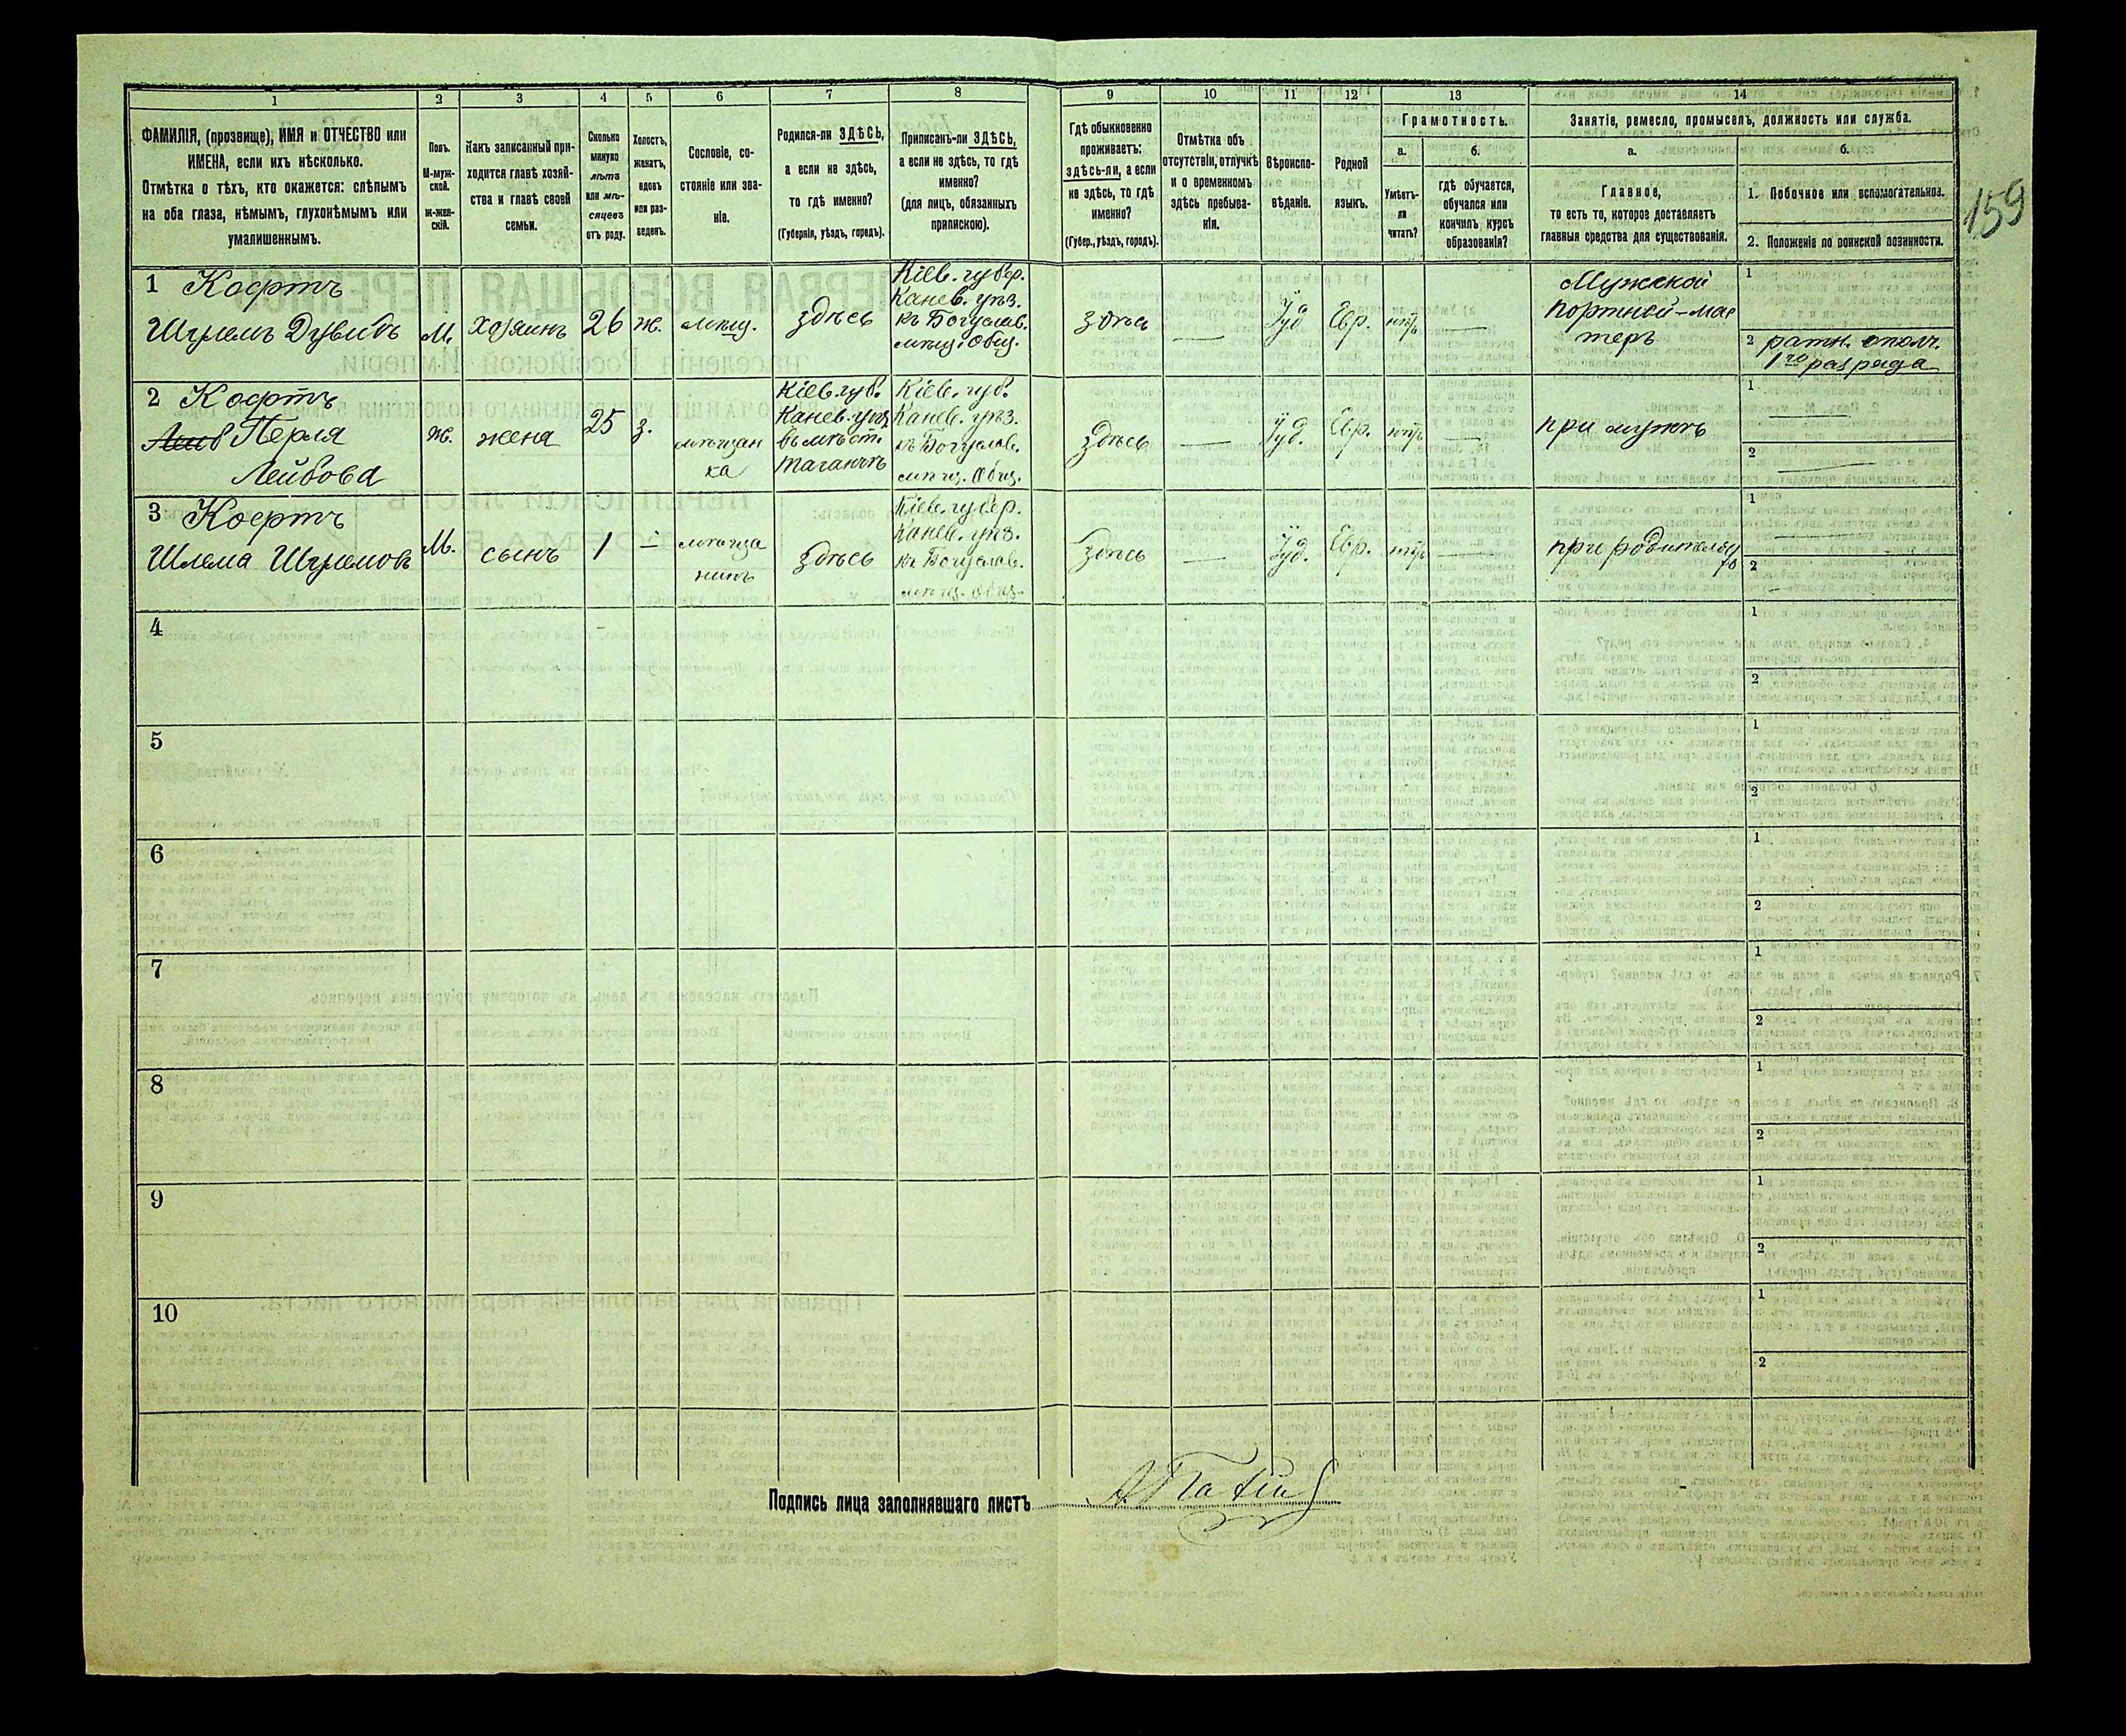 159
1
2
3
4
5
6
7
8
9
10
11
12
13
14
ФАМИЛІЯ, (прозвище), ИМЯ и ОТЧЕСТВО или
ИМЕНА, если ихъ нѣсколько.
Отмѣтка о тѣхъ, кто окажется: слѣпымъ
на оба глаза, нѣмымъ, глухонѣмымъ или
умалишеннымъ.
Полъ.
М-муж-
ской.
Ж-жен-
скій.
Какъ записанный при-
ходится главѣ хозяй-
ства и главѣ своей
семьи.
Сколько
минуло
лѣтъ
или мѣ-
сяцевъ
отъ роду.
Холостъ,
женатъ,
вдовъ
или раз-
веденъ.
Сословіе, со-
стояніе или зва-
ніе.
Родился-ли ЗДѢСЬ,
а если не здѣсь,
то гдѣ именно?
(Губернія, уѣздъ, городъ).
Приписанъ-ли ЗДѢСЬ,
а если не здѣсь, то гдѣ
именно?
(для лицъ, обязанныхъ
припискою).
Гдѣ обыкновенно
проживаетъ:
здѣсь-ли, а если
не здѣсь, то гдѣ
именно?
(Губер., уѣздъ, городъ).
Отмѣтка объ
отсутствіи, отлучкѣ
и о временномъ
здѣсь пребыва-
ніи.
Вѣроиспо-
вѣданіе.
Родной
языкъ.
Грамотность.
а.
Умѣетъ-
ли
читать?
б.
гдѣ обучается,
обучался или
кончилъ курсъ
образованія?
Занятіе, ремесло, промыселъ, должность или служба.
а.
Главное,
то есть то, которое доставляетъ
главныя средства для существованія.
б.
1. Побочное или вспомогательное.
2. Положеніе по воинской повинности.
1 Кофтъ
Шулемъ Дувидъ
М.
хозяинъ
26
ж.
мѣщ.
здѣсь
Кіев. губер.
Канев. уѣз.
къ Богуслав.
мѣщ. Общ.
здѣсь
—
Іуд.
Евр.
нѣтъ
—
Мужской
портной-мас
теръ
1
2 ратн. ополч.
1го разряда
2 Кофтъ
Перля
Лейбова
ж.
жена
25
з.
мѣщан
ка
Кіев. губ.
Канев. уѣз.
въ мѣст.
Таганчѣ
Кіев. губ.
Канев. уѣз.
къ Богуслав.
мѣщ. Общ.
здѣсь
—
Іуд.
Евр.
нѣтъ
—
при мужѣ
1 —
2 —
3 Кофтъ
Шлема Шулемовъ
М.
сынъ
1
—
мѣща
нинъ
здѣсь
Кіев. губер.
Канев. уѣз.
къ Богуслав.
мѣщ. Общ.
здѣсь
—
Іуд.
Евр.
нѣтъ
—
при родителяхъ
1 —
2 —
4
1
2
5
1
2
6
1
2
7
1
2
8
1
2
9
1
2
10
1
2
Подпись лица заполнявшаго листъ